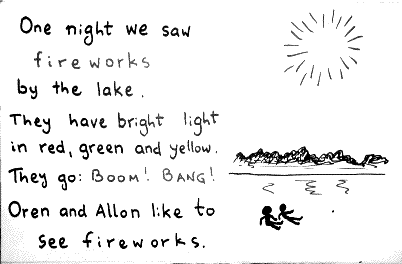 One night we saw
fireworks
by the lake.
They have bright light
in red, green and yellow.
They go: BOOM! BANG!
Oren and Allon like to
see fireworks.